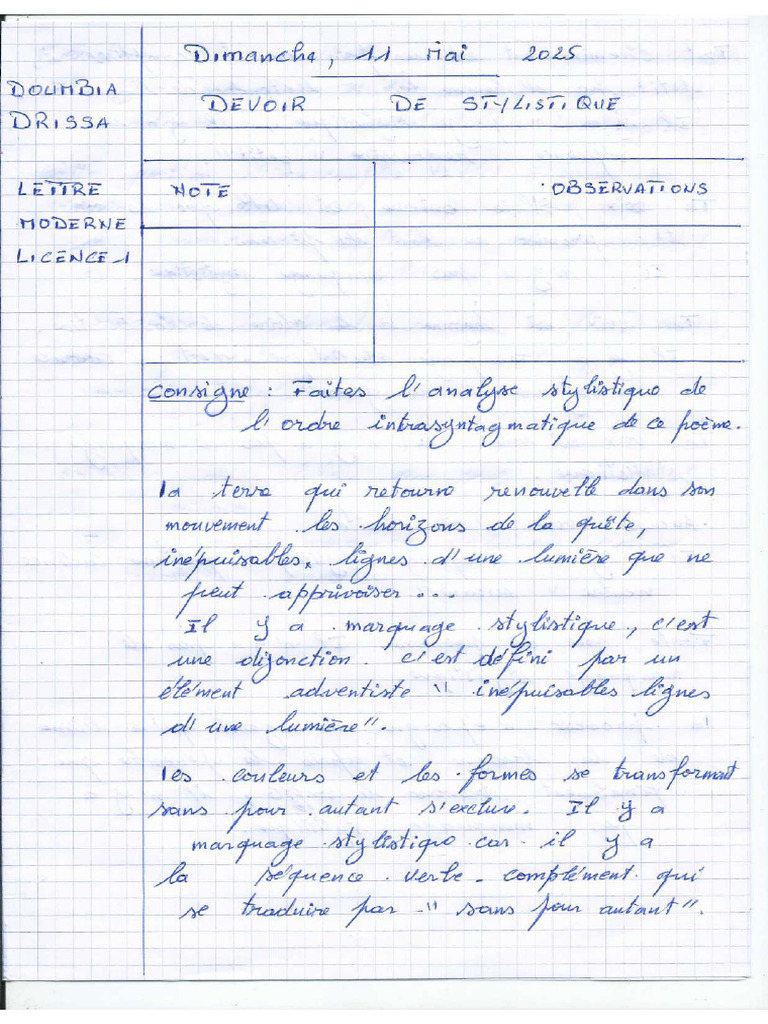 Dimanche, 11 Mai 2025
DOUMBIA
DRISSA
DEVOIR DE STYLISTIQUE
LETTRE
MODERNE
LICENCE 1
NOTE
OBSERVATIONS
Consigne : Faites l'analyse stylistique de
l'ordre intrasyntagmatique de ce poème.
la terre qui retourne renouvelle dans son
mouvement les horizons de la quête,
inépuisables, lignes d'une lumière que ne
peut apprivoiser ...
Il y a marquage stylistique, c'est
une dijonction. c'est défini par un
élément adventiste " inépuisables lignes
d'une lumière".
les couleurs et les formes se transformait
sans pour autant s'exclure. Il y a
marquage stylistique car il y a
la séquence verbe - complément qui
se traduire par " sans pour autant".